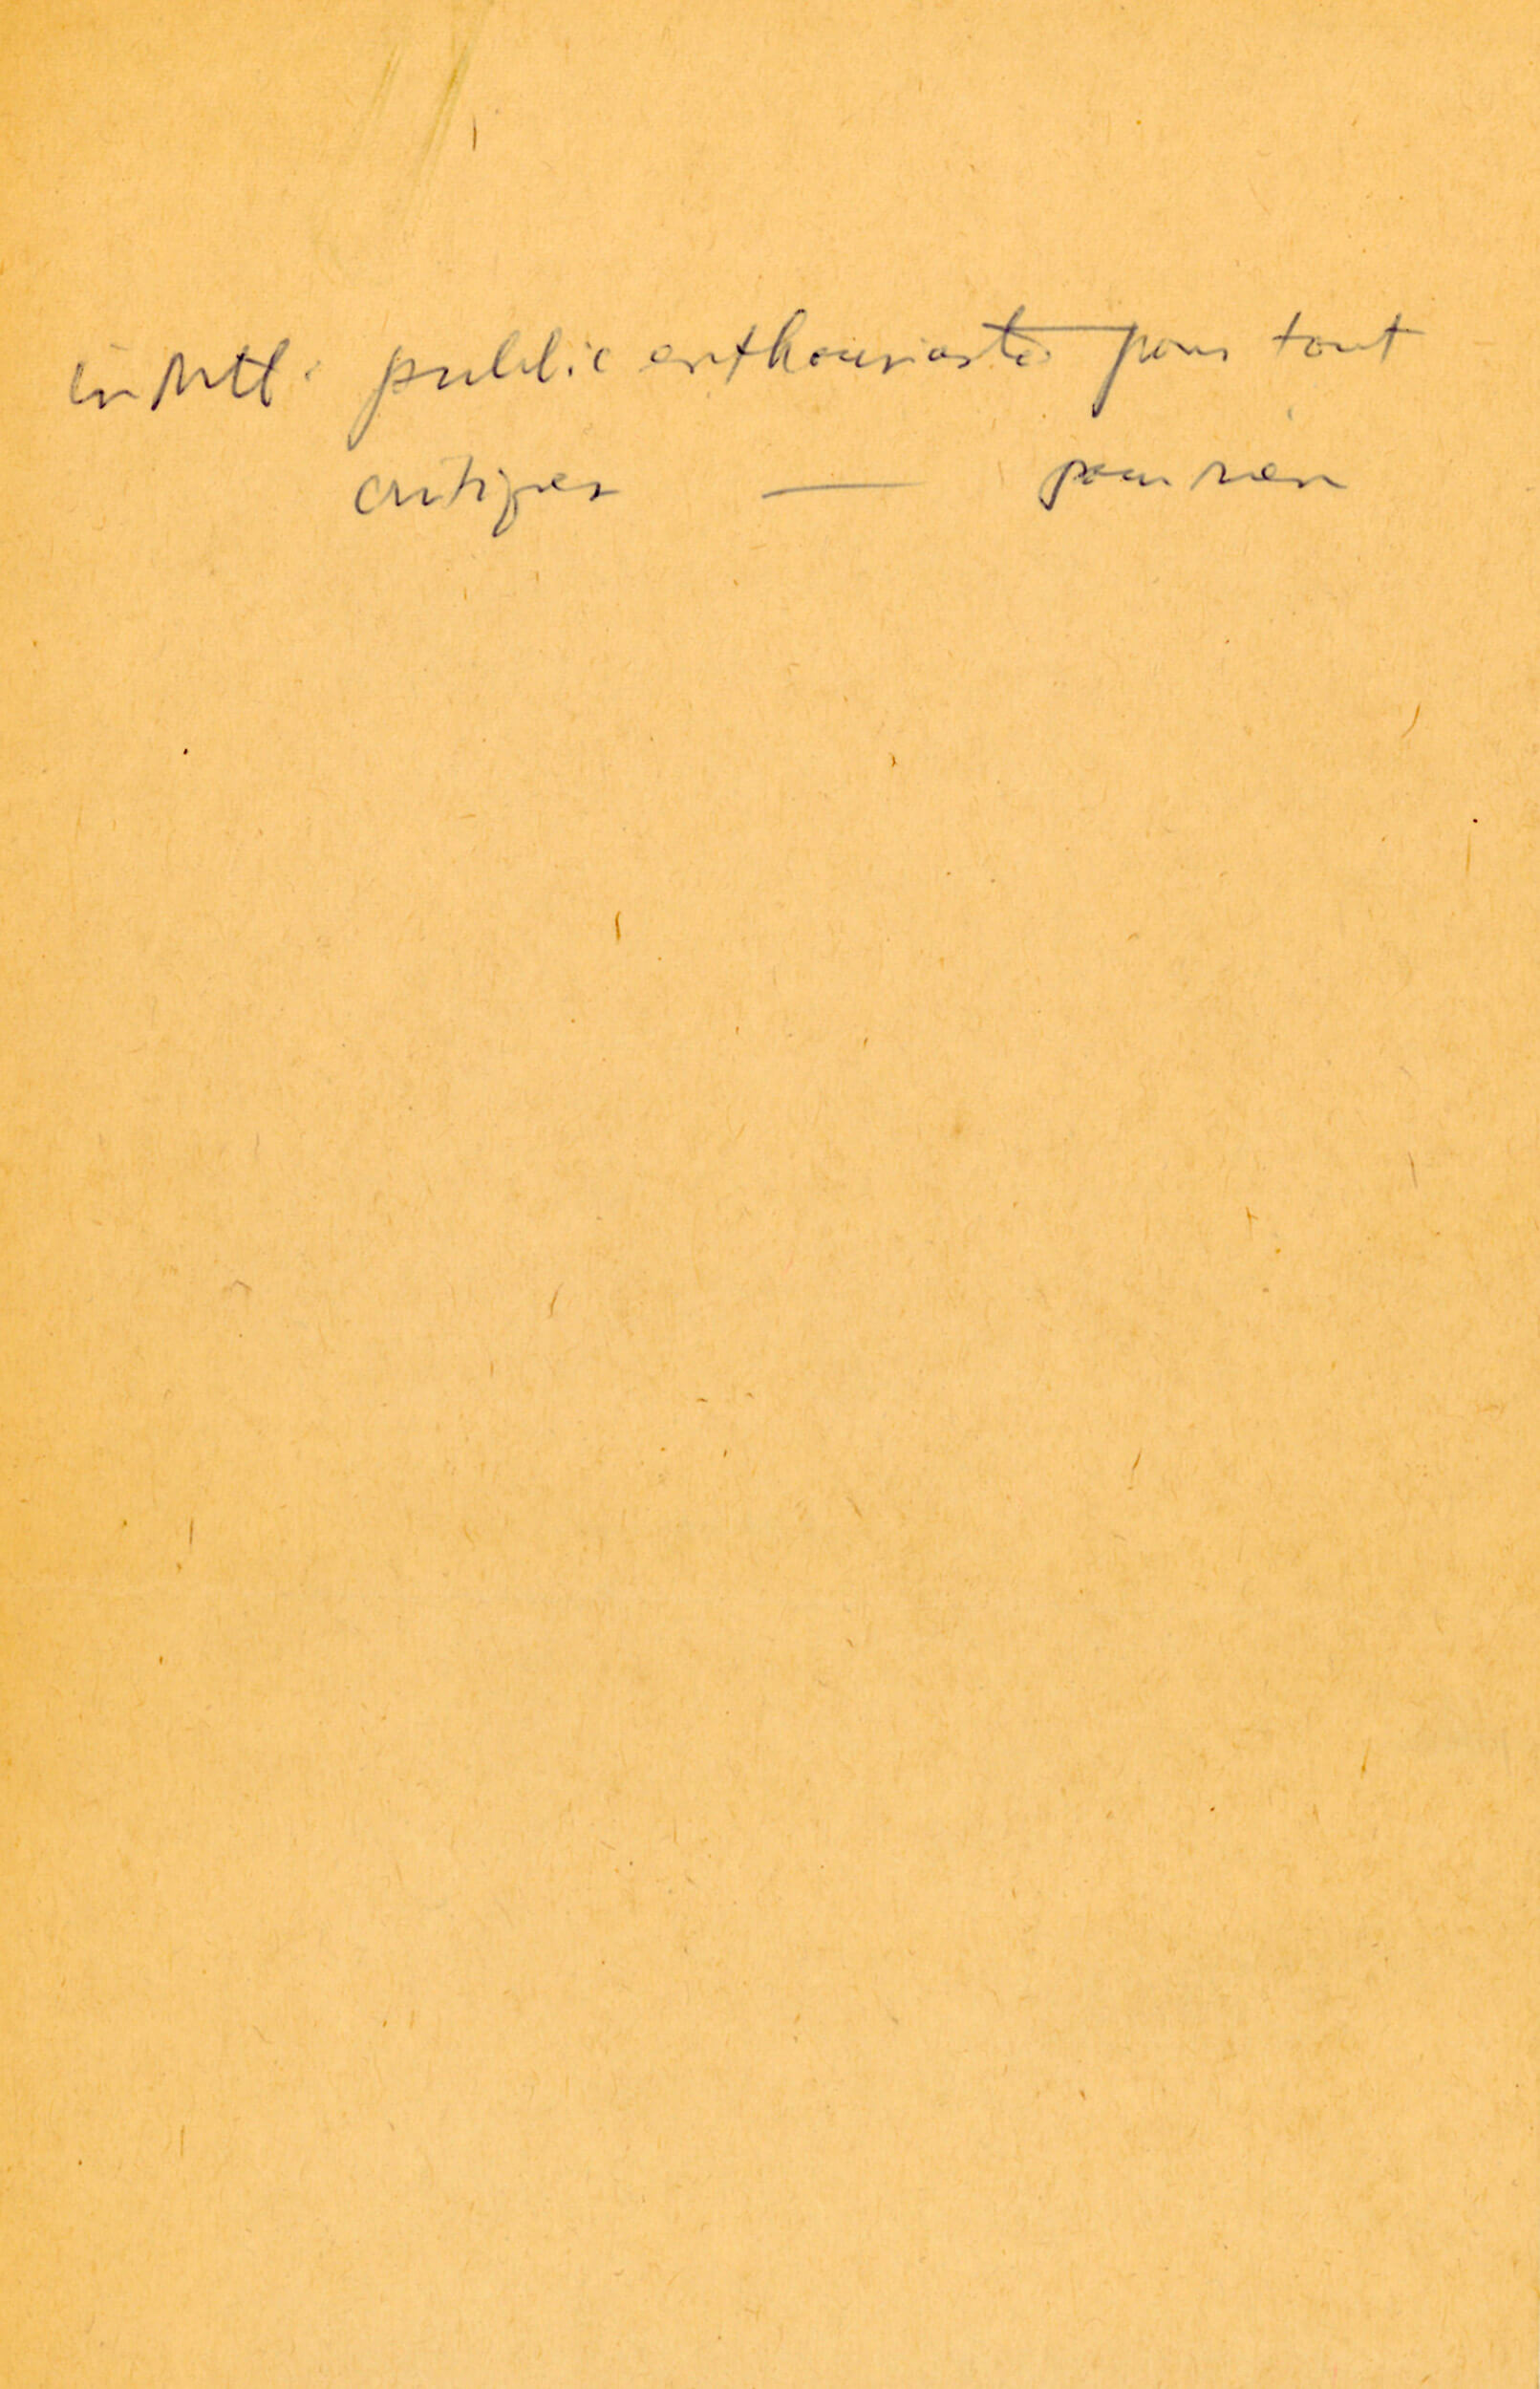 in Mtl : public enthousiaste pour tout
critiques — pour rien